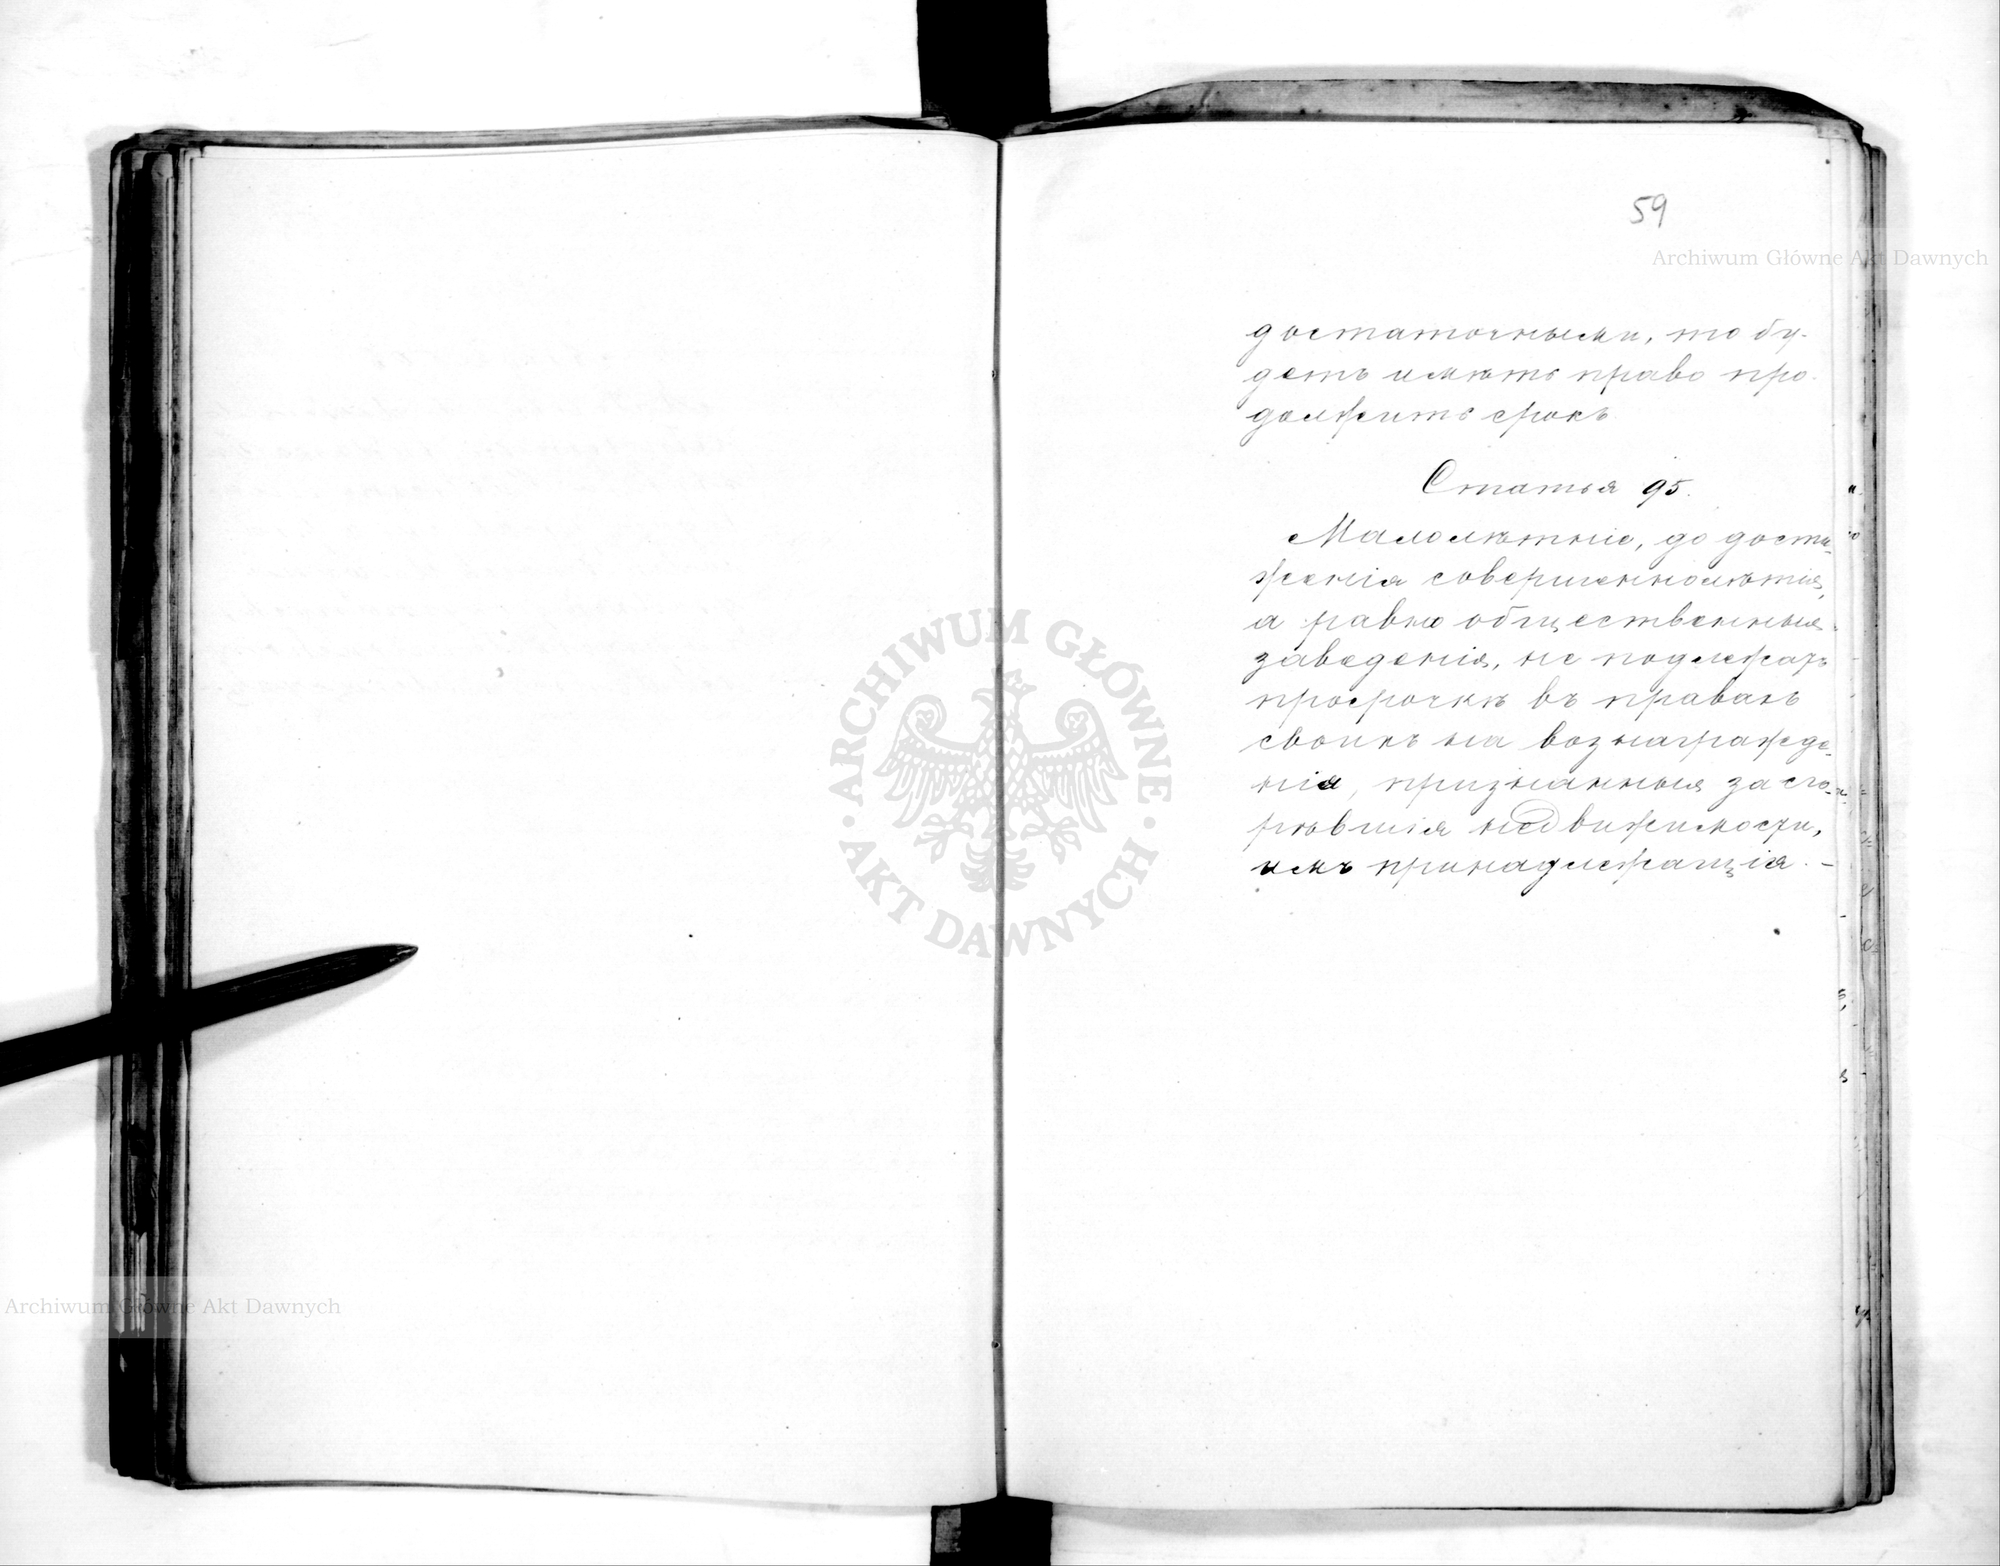 59
Archiwum Główne Akt Dawnych
достаточными, то бу-
детъ имѣть право про-
должить срокъ.
Статья 95.
Малолѣтніе, до дости-
женія совершеннолѣтія,
а равно общественныя
заведенія, не подлежатъ
просрочкѣ въ правахъ
своихъ на вознагражде-
нія, признанныя за сго-
рѣвшія недвижимости,
имъ принадлежащія. –
ARCHIWUM GŁÓWNE
AKT DAWNYCH
Archiwum Główne Akt Dawnych